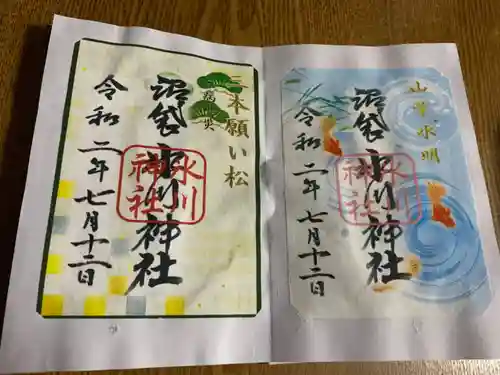 山紫水明
沼袋氷川神社
氷川
神社
令和二年七月十二日
三本願い松
沼袋氷川神社
氷川
神社
令和二年七月十二日